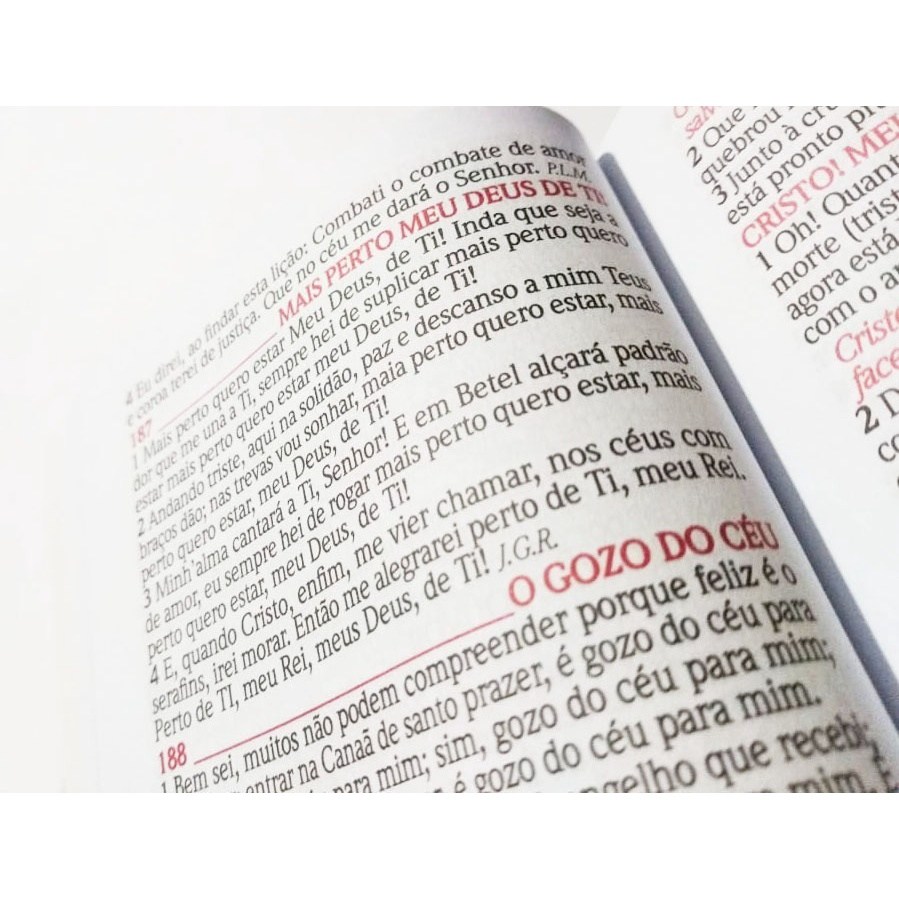 4 Eu direi, ao findar esta lição: Combati o combate de amor
e coroa terei de justiça. Que no céu me dará o Senhor. P.L.M.
187 MAIS PERTO MEU DEUS DE TI!
1 Mais perto quero estar Meu Deus, de Ti! Inda que seja a
dor que me una a Ti, sempre hei de suplicar mais perto quero
estar mais perto quero estar meu Deus, de Ti!
2 Andando triste, aqui na solidão, paz e descanso a mim Teus
braços dão; nas trevas vou sonhar, maia perto quero estar, mais
perto quero estar, meu Deus, de Ti!
3 Minh'alma cantará a Ti, Senhor! E em Betel alçará padrão
de amor, eu sempre hei de rogar mais perto quero estar, mais
perto quero estar, meu Deus, de Ti!
4 E, quando Cristo, enfim, me vier chamar, nos céus com
serafins, irei morar. Então me alegrarei perto de Ti, meu Rei.
Perto de TI, meu Rei, meus Deus, de Ti! J.G.R.
188 O GOZO DO CÉU
1 Bem sei, muitos não podem compreender porque feliz é o
entrar na Canaã de santo prazer, é gozo do céu para
para mim; sim, gozo do céu para mim;
é gozo do céu para mim.
que recebi;
mim. É
2 Que
quebrou
3 Junto à
está pronto
CRISTO!
1 Oh!
morte
agora está
com o
2